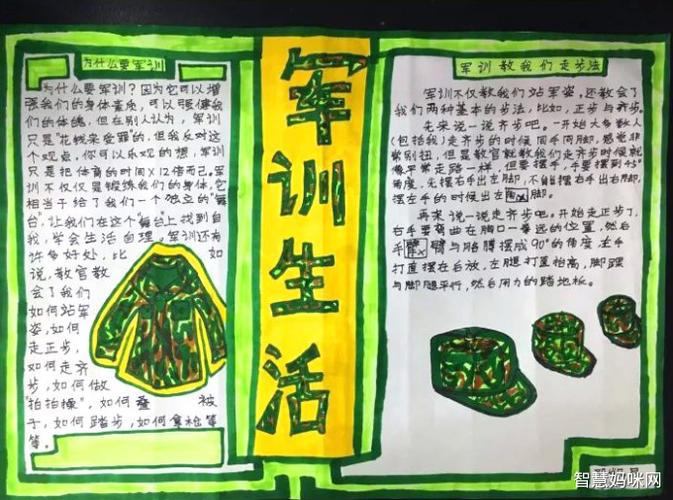 为什么要军训
为什么要军训?因为它可以增
强我们的身体素质,可以强健我
们的体魄,但在别人认为,军训
只是"花钱来受罪"的,但我反对这
个观点,你可以乐观的想,军训
只是把体育的时间×12倍而已,军
训不仅仅是锻炼我们的身体,它
相当于给了我们一个独立的"舞
台",让我们在这个"舞台"上找到自
我,学会生活自理,军训还有
许多好处,比如
说,教官教
会了我们
如何站军
姿,如何
走正步,
如何走齐
步,如何做
"拍拍操",如何叠被
子,如何踏步,如何拿枪等
等。
军训生活
军训教我们走步法
军训不仅教我们站军姿,还教会了
我们两种基本的步法,比如,正步与齐步。
先来说一说齐步吧。一开始大多数人
(包括我)走齐步的时候同手同脚,感觉非
常别扭,但是教官就教我们走齐步时候就
像平常走路一样,但要摆手,手要摆到45°
角度,先摆右手出左脚,不能摆右手出右脚,
摆左手的时候出左脚。
再来说一说走齐步吧。开始走正步了,
右手要弯曲在胸口一拳远的位置,然后
手臂与胳膊摆成90°的角度,左手
打直摆在后放,左腿打直抬高,脚踝
与脚腿平行,然后用力的踏地板。
智慧妈咪网